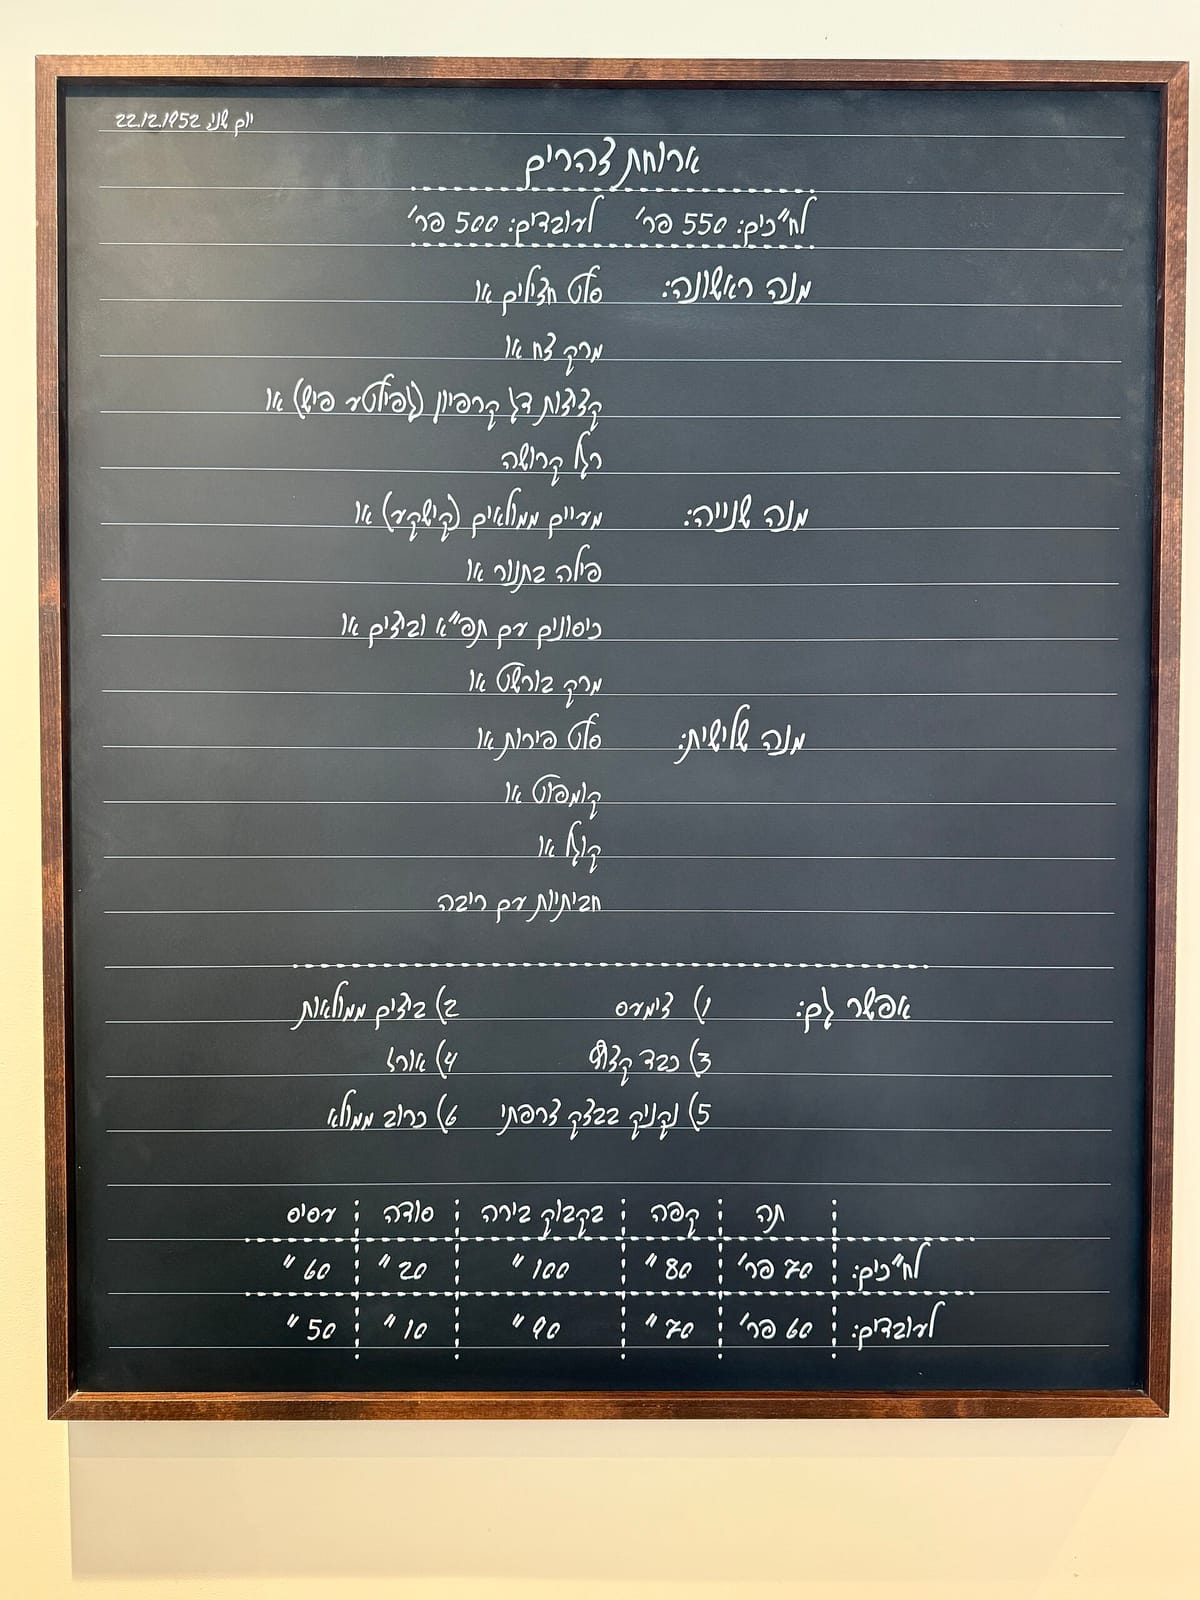 יום שני 22.12.1952
ארוחת צהרים
לח"כים: 550 פר' לעובדים: 500 פר'
מנה ראשונה: סלט חצילים או
מרק צח או
קציצות דג קרפיון (גפילטע פיש) או
רגל קרושה
מנה שנייה: מעיים ממולאים (קישקע) או
פילה בתנור או
כיסונים עם תפ"א וביצים או
מרק בורשט או
מנה שלישית: סלט פירות או
קומפוט או
קוגל או
חביתיות עם ריבה
אפשר גם: 1) צימעס 2) ביצים ממולאות
3) כבד קצוץ 4) אורז
5) נקניק בבצק צרפתי 6) כרוב ממולא
תה קפה בקבוק בירה סודה עסיס
לח"כים: 70 פר' 80 " 100 " 20 " 60 "
לעובדים: 60 פר' 70 " 90 " 10 " 50 "